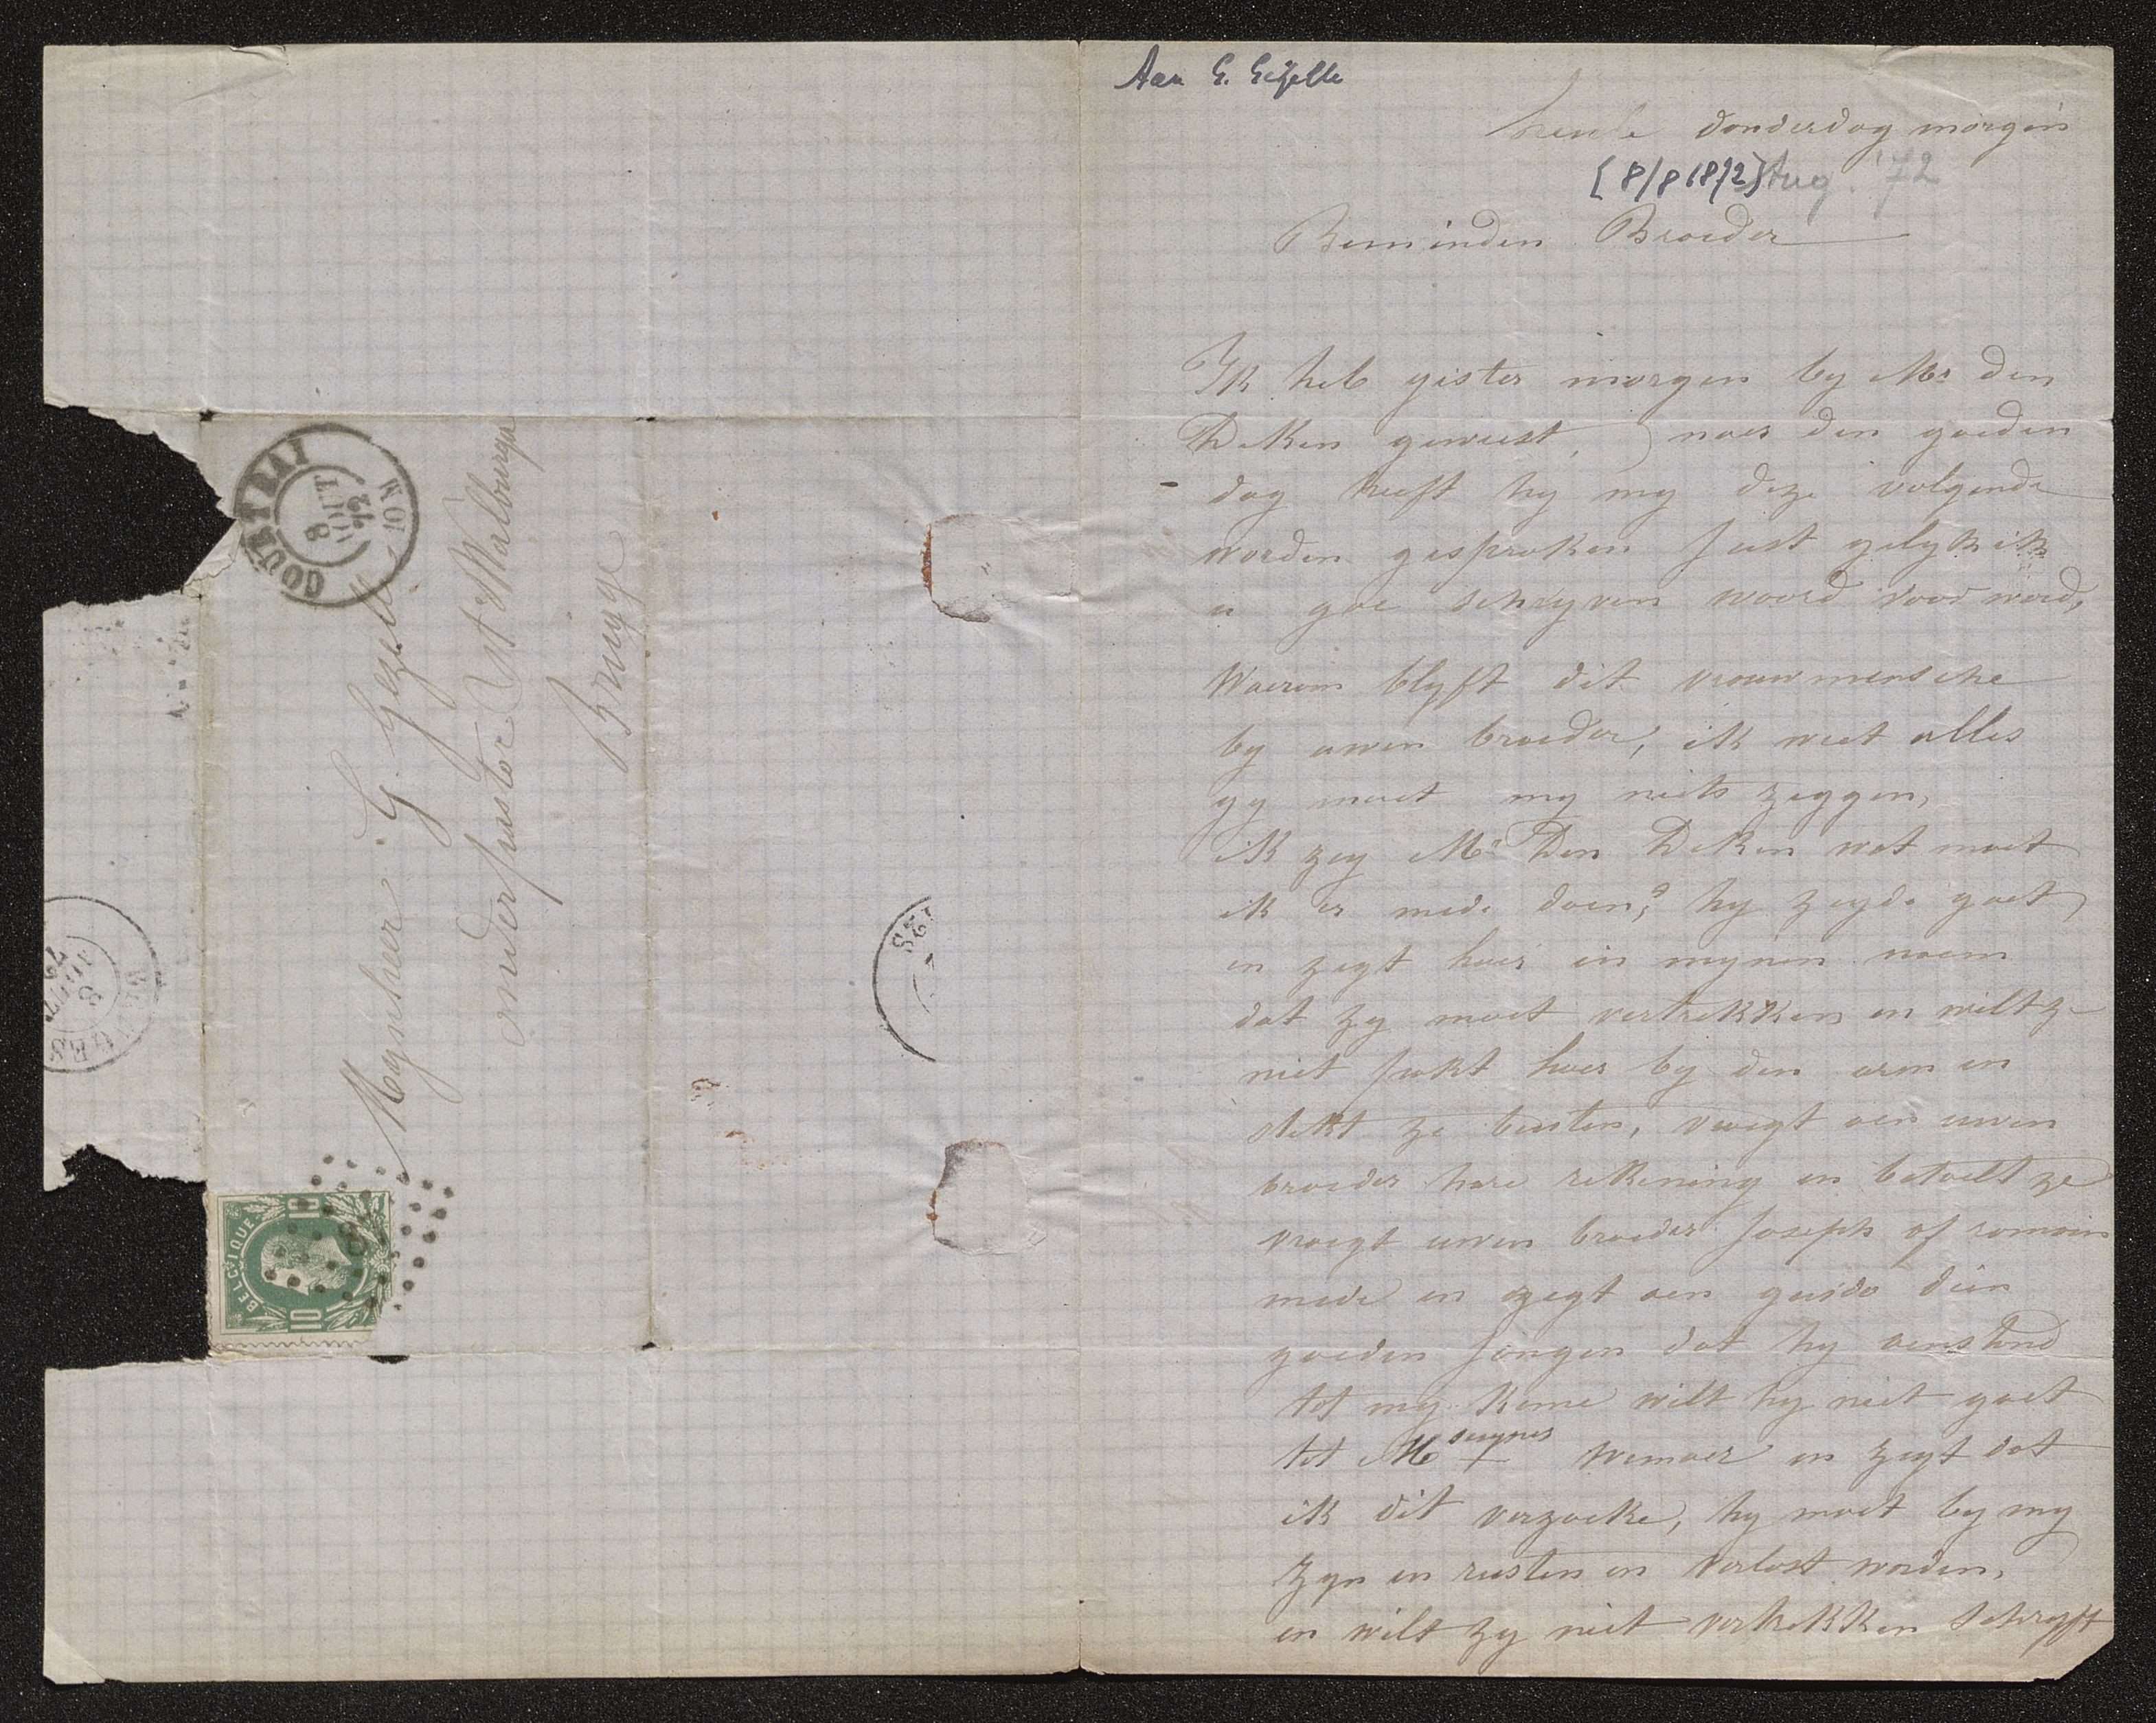 Aan G. Gezelle
heule donderdag morgen
[8/8 1872] Aug. '72
Beminden Broeder
Ik heb gister morgen by Mr den
Deken geweest, naer den goeden
dag heeft hy my deze volgende
worden gesproken just gelyk ik
u gae schryven woord voor word,
Waerom blyft dit vrouwmensche
by uwen broeder, ik weet alles
gy moet my niets zeggen,
ik zeg Mr Den Deken wat moet
ik er mede doen? hy zeyde gaet
en zegt haer in mynen naem
dat zy moet vertrekken en wilt ze
niet pakt haer by den arm en
stekt ze buuten, vraegt aen uwen
broeder hare rekening en betaelt ze
vraegt uwen broeder Joseph of romain
mede en zegt aen guido dien
goeden jongen dat hy aenstond
tot my kome wilt hy niet gaet
tot M seigneur Wemaer en zegt dat
ik dit verzoeke, hy moet by my
zyn en rusten en verlost worden,
en wilt zy niet vertrekken schryft
Mynheer G Gezelle
onderpastor St Walburga
Brugge
COURTRAI
8
AOUT
72
10 M
BELGIQUE
10
10
BRUGES
8
AOUT
72